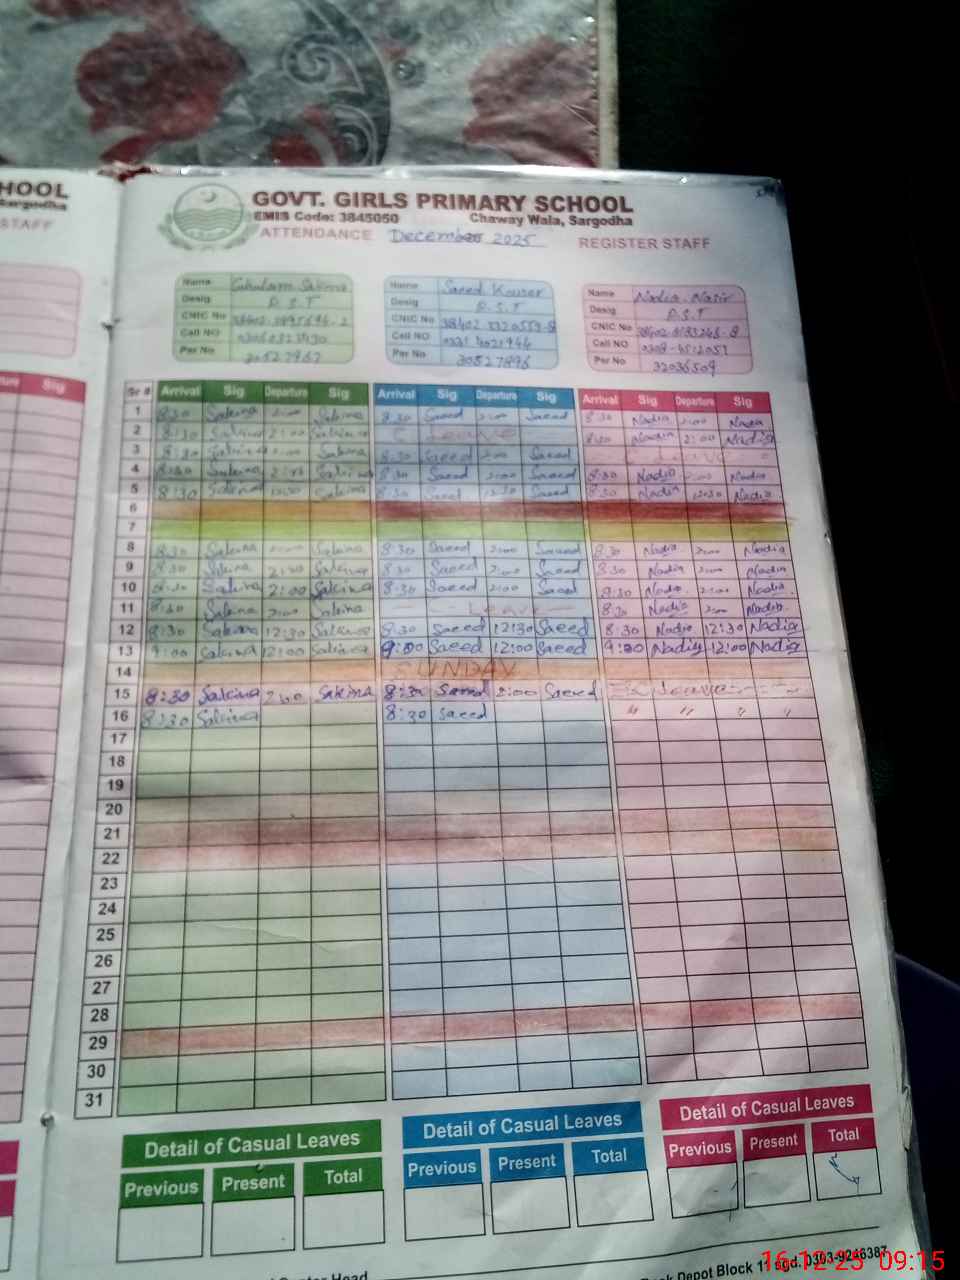 HOOL
Sargodha
STAFF
Sig
GOVT. GIRLS PRIMARY SCHOOL
EMIS Code: 3845050 Chaway Wala, Sargodha
ATTENDANCE December 2025 REGISTER STAFF
Name Sakina Name Saeed Kouser Name Nadia Nasir
Desig P.S.T Desig P.S.T Desig P.S.T
CNIC No CNIC No CNIC No
Cell NO Cell NO Cell NO
Per No Per No Per No 32036509
Sr # Arrival Sig Departure Sig Arrival Sig Departure Sig Arrival Sig Departure Sig
1 8:30 Sakina 2:00 Sakina 8:30 Saeed 2:00 Saeed 8:30 Nadia 2:00 Nadia
2 8:30 Sakina 2:00 Sakina Leave 8:30 Nadia 2:00 Nadia
3 8:30 Sakina 2:00 Sakina 8:30 Saeed 2:00 Saeed Leave
4 8:30 Sakina 2:00 Sakina 8:30 Saeed 2:00 Saeed 8:30 Nadia 2:00 Nadia
5 8:30 Sakina 12:30 Sakina 8:30 Saeed 12:30 Saeed 8:30 Nadia 12:30 Nadia
6
7
8 8:30 Sakina 2:00 Sakina 8:30 Saeed 2:00 Saeed 8:30 Nadia 2:00 Nadia
9 8:30 Sakina 2:00 Sakina 8:30 Saeed 2:00 Saeed 8:30 Nadia 2:00 Nadia
10 8:30 Sakina 2:00 Sakina 8:30 Saeed 2:00 Saeed 8:30 Nadia 2:00 Nadia
11 8:30 Sakina 2:00 Sakina Leave 8:30 Nadia 2:00 Nadia
12 8:30 Sakina 12:30 Sakina 8:30 Saeed 12:30 Saeed 8:30 Nadia 12:30 Nadia
13 9:00 Sakina 12:00 Sakina 9:00 Saeed 12:00 Saeed 9:00 Nadia 12:00 Nadia
14 SUNDAY
15 8:30 Sakina 2:00 Sakina 8:30 Saeed 2:00 Saeed Leave
16 8:30 Sakina 8:30 Saeed " " " "
17
18
19
20
21
22
23
24
25
26
27
28
29
30
31
Detail of Casual Leaves Detail of Casual Leaves Detail of Casual Leaves
Previous Present Total Previous Present Total Previous Present Total
Head
Depot Block 11 sgd. 0303-9246387
16-12-25 09:15